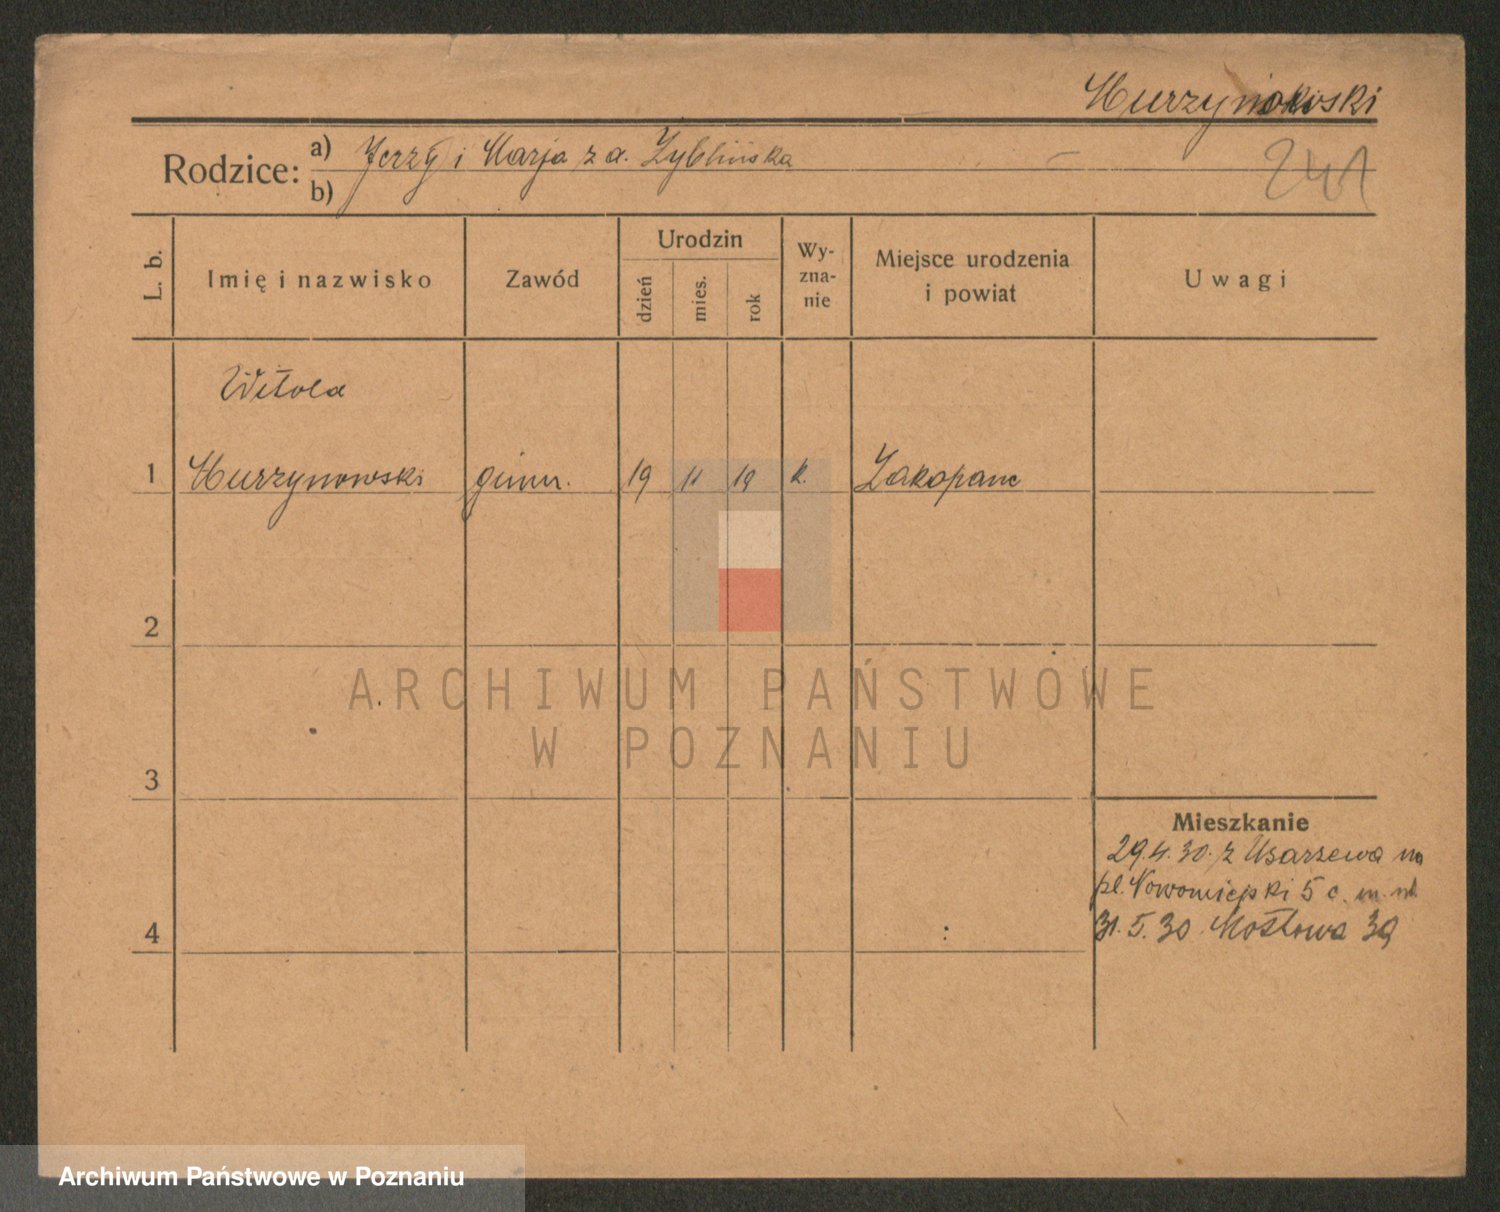 Murzynowski
Rodzice: a) Jerzy i Marja z d. Zyblińska
b)
241
L. b.
Imię i nazwisko
Zawód
Urodzin
dzień
mies.
rok
Wy-
zna-
nie
Miejsce urodzenia
i powiat
Uwagi
Witold
1 Murzynowski gimn. 19 11 19 k. Zakopane
2
ARCHIWUM PAŃSTWOWE
W POZNANIU
3
Mieszkanie
29.4.30. z Usarzewa na
pl. Nowomiejski 5 c.
31.5.30 Mostowa 39
4
Archiwum Państwowe w Poznaniu